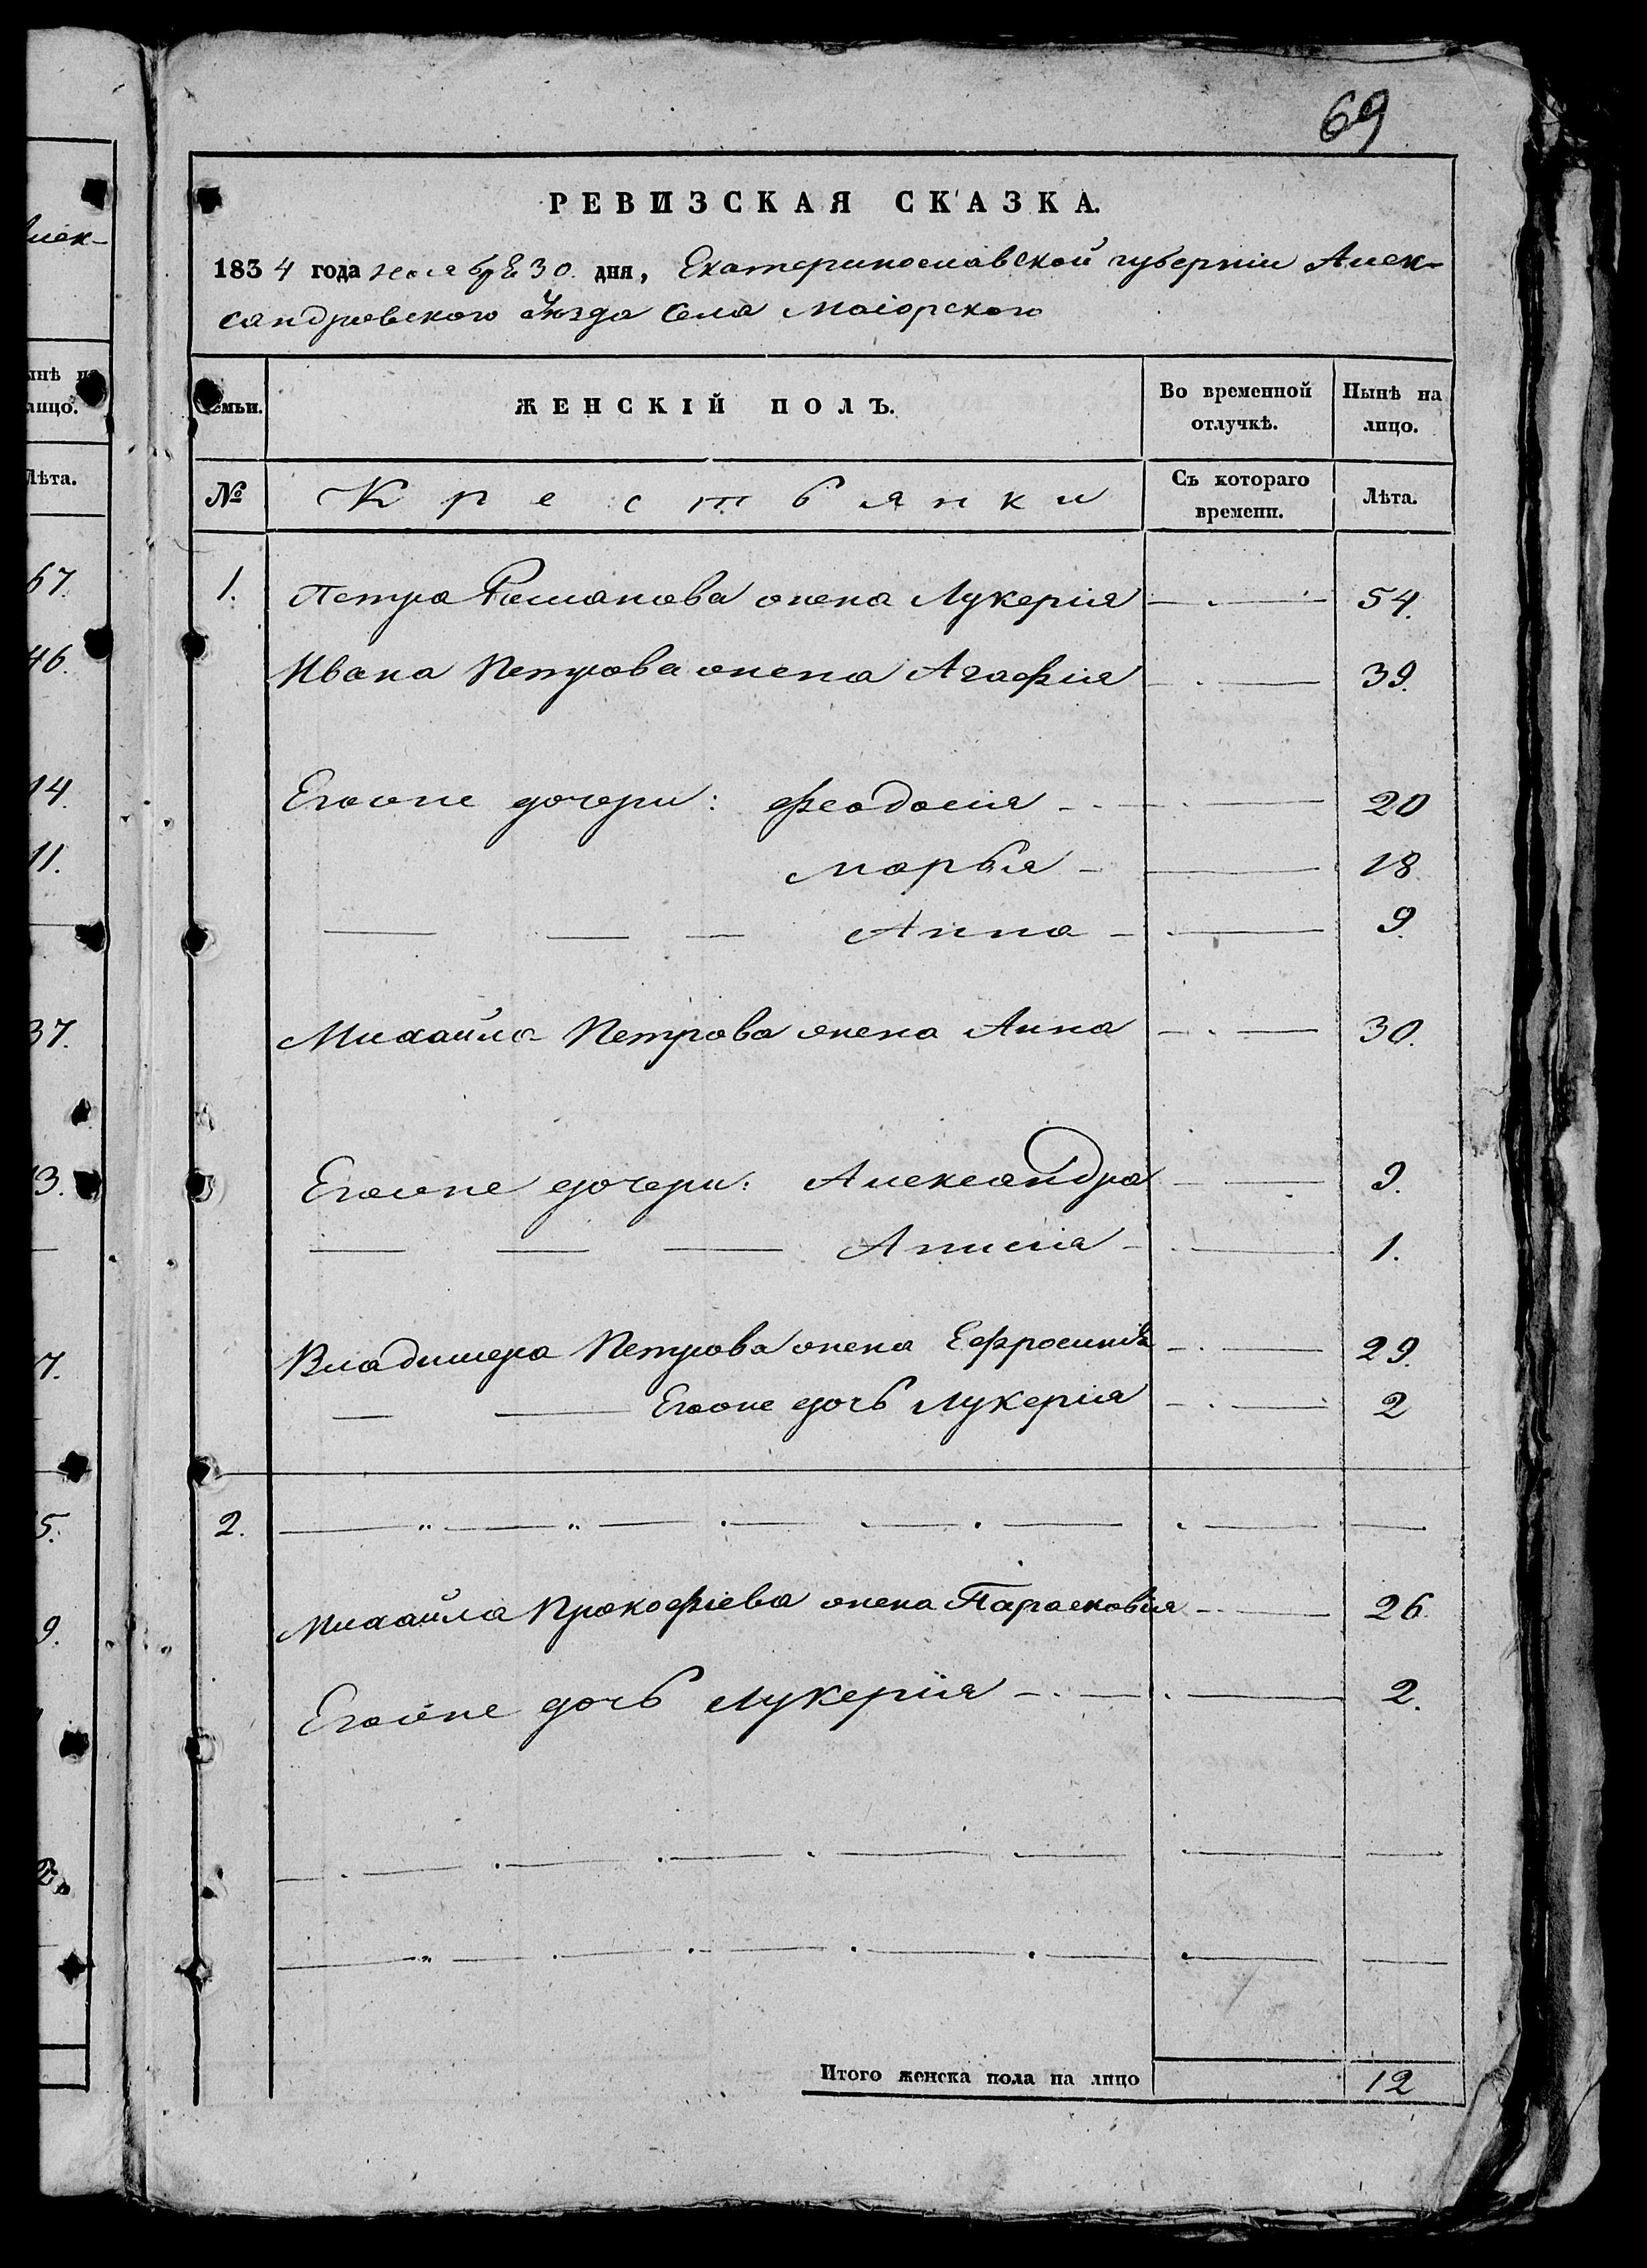 69
РЕВИЗСКАЯ СКАЗКА.
1834 года ноября 30. дня, Екатеринославской губерніи Алек-
сандровского Уѣзда Села Маіорского
ЖЕНСКІЙ ПОЛЪ.
Во временной отлучкѣ.
Нынѣ на лицо.
№ Крестьянки
Съ котораго времени.
Лѣта.
1. Петра Романова жена Лукерія 54.
Ивана Петрова жена Агафія 39.
Егоже дочери: Феодосія 20
Марья 18
Анна 9.
Михайла Петрова жена Анна 30.
Егоже дочери: Александра 9.
Анисія 1.
Владимера Петрова жена Ефросинія 29.
Егоже дочь Лукерія 2
2.
Михайла Прокофіева жена Парасковія 26.
Егоже дочь Лукерія 2.
Итого женска пола на лицо 12
Алек-
Лѣта.
67.
46.
14.
11.
37.